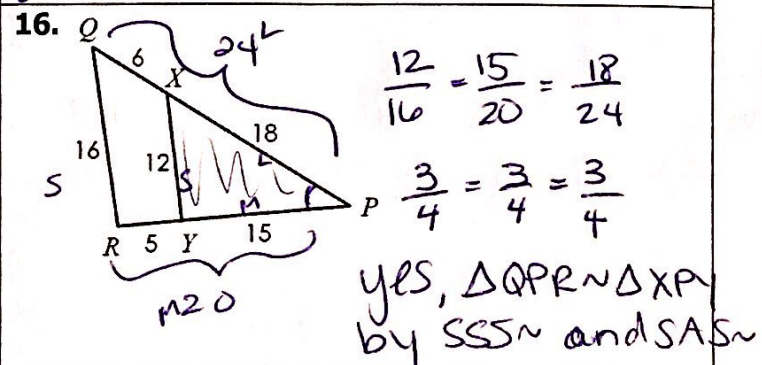 16.
Q
6
24 L
X
18
16
12
S
S
L
M
P
R 5 Y 15
M20
12/16 = 15/20 = 18/24
3/4 = 3/4 = 3/4
yes, △QPR~△XPY
by SSS~ and SAS~